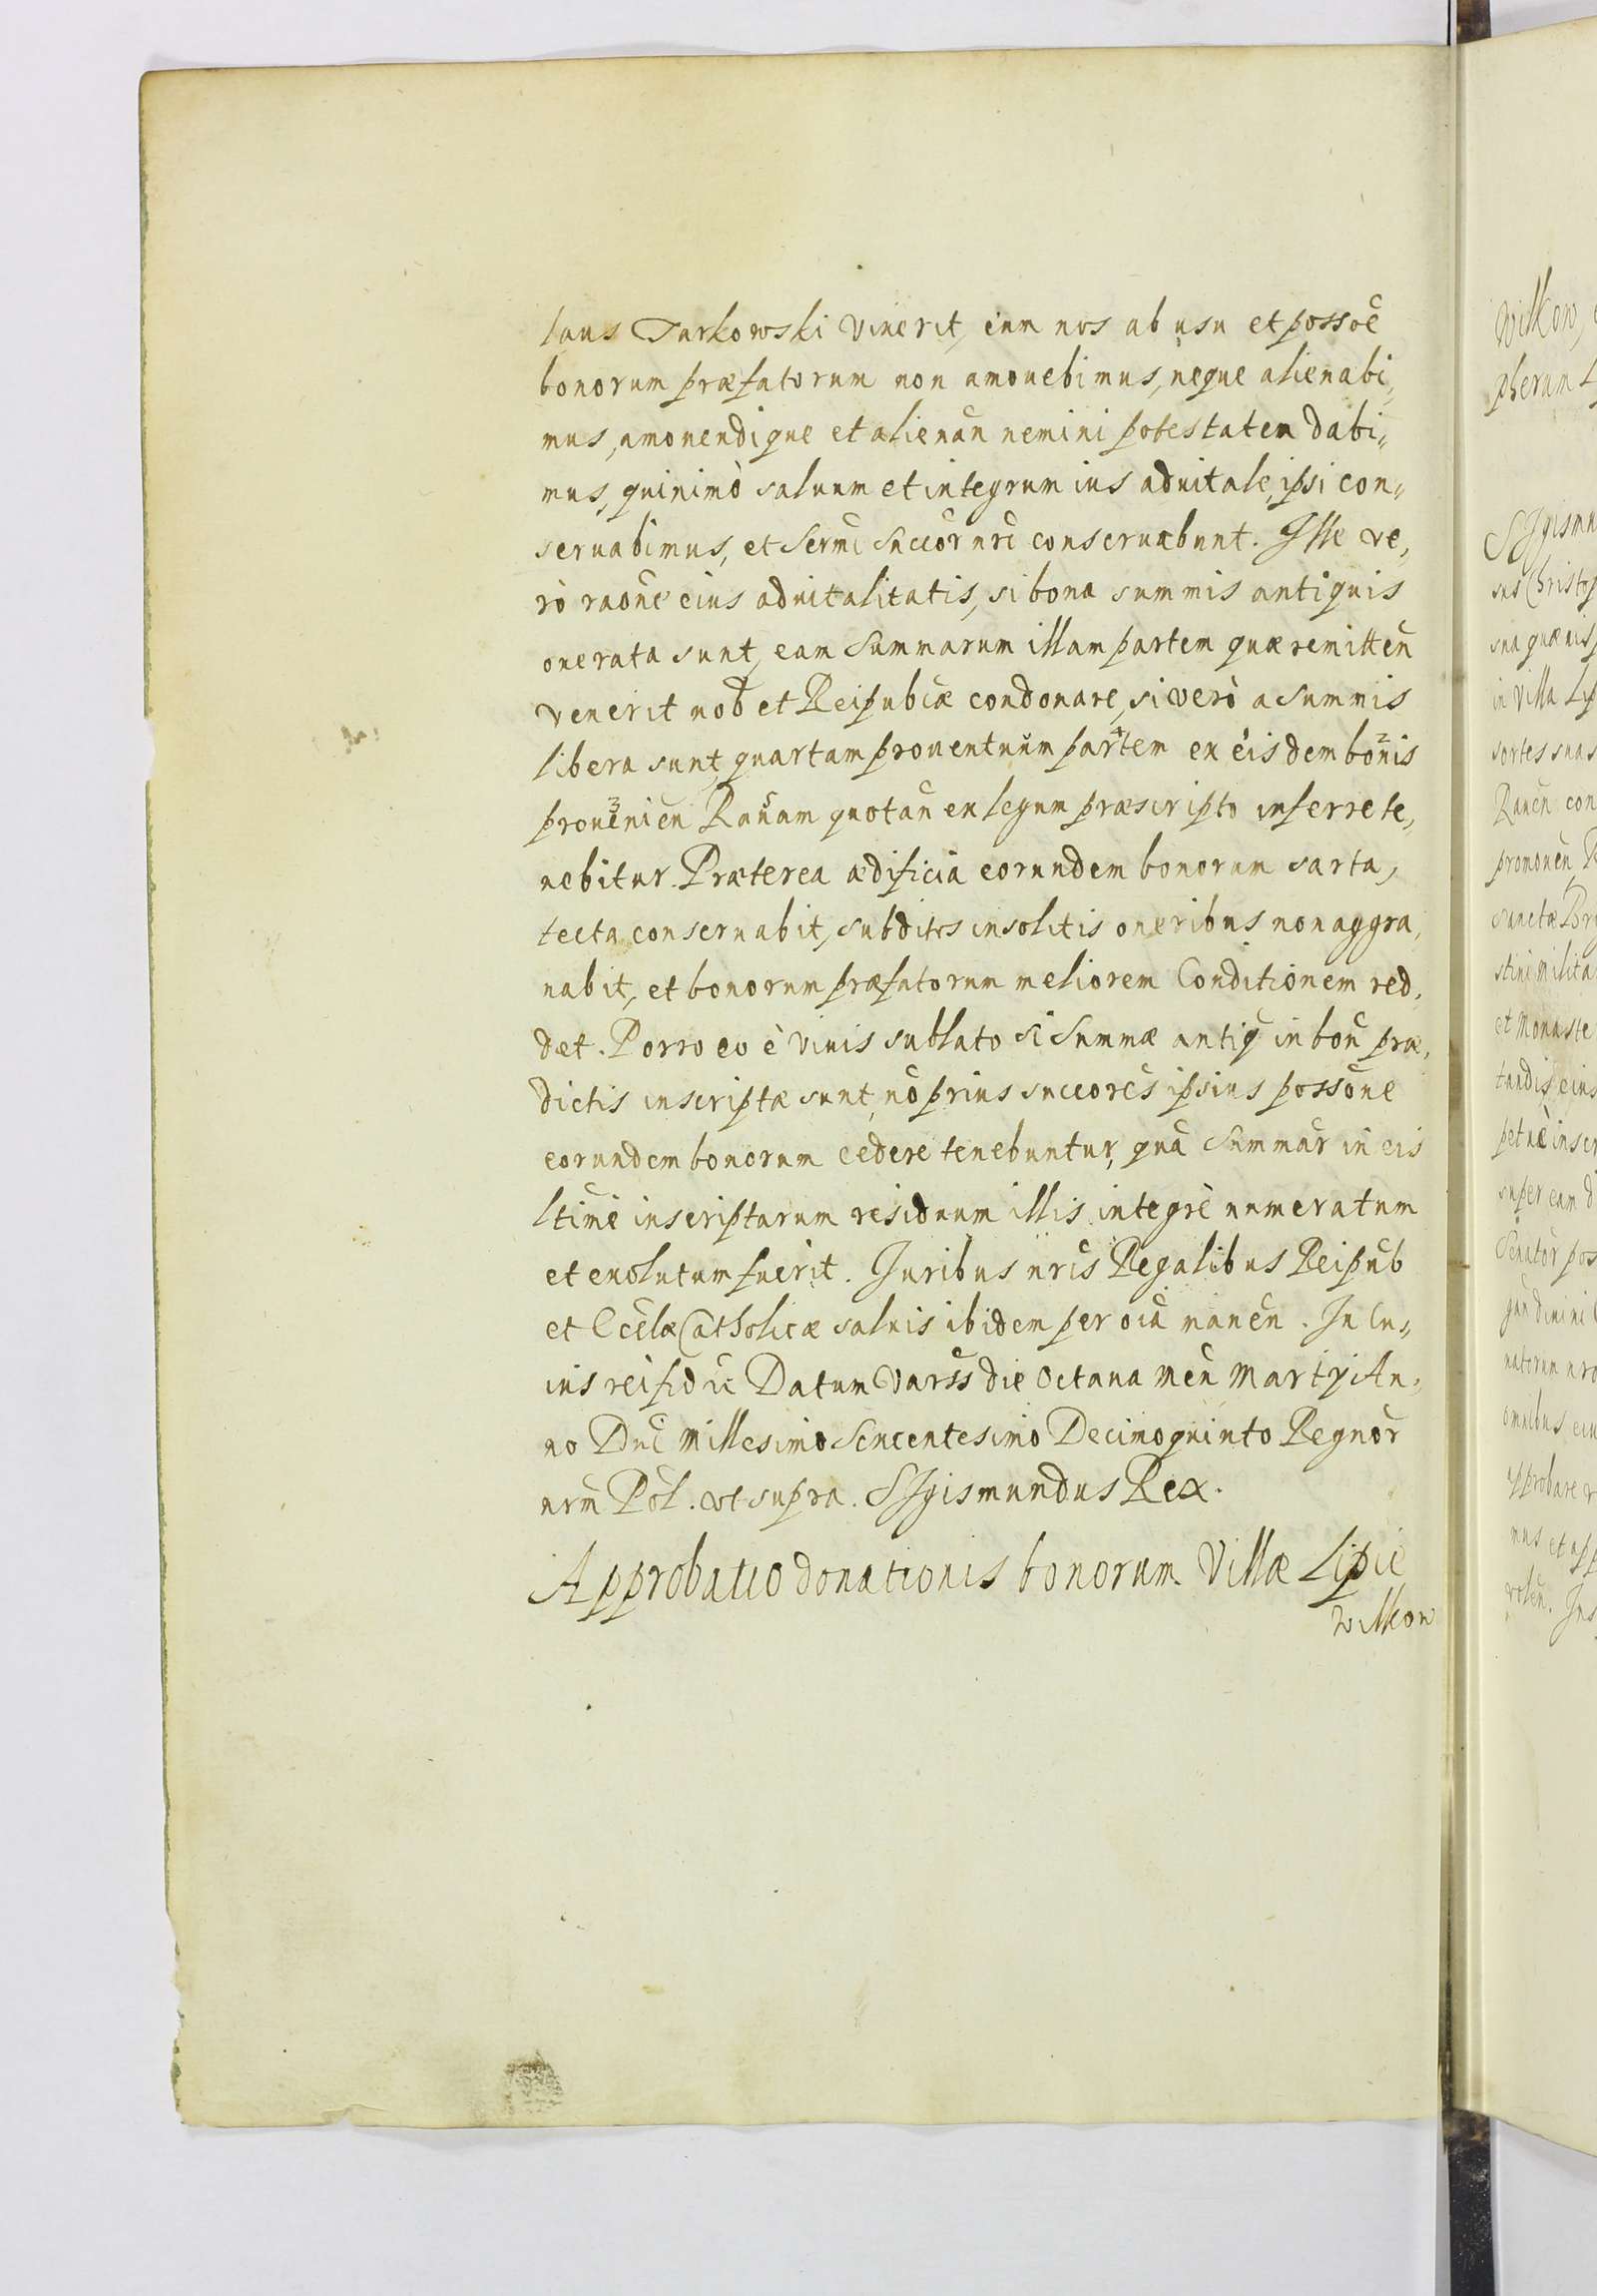 laus Tarkowski vixerit, eum nos ab usu et possoe
bonorum præfatorum non amouebimus, neque alienabi,
mus, amouendique et alienan nemini potestatem dabi„
mus, quinimò saluum et integrum ius aduitale, ipsi con„
seruabimus, et Sermi Succor nri conseruabunt. Ille ve,
rò raone eius aduitalitatis, si bona summis antiquis
onerata sunt, eam Summarum illam partem quæ remitten
venerit nob et Reipubcæ condonare, si verò a summis
libera sunt, quartam prouentuum partem ex eisdem bonis
prouenien Rauam quotan ex legum præscripto inferre te,
nebitur. Præterea ædificia eorundem bonorum sarta,
tecta conseruabit, subditos insolitis oneribus non aggra,
uabit, et bonorum præfatorum meliorem Conditionem red,
det. Porro eo è viuis sublato si Summæ antiq in bon præ,
dictis inscriptæ sunt, no prius succores ipsius possone
eorundem bonorum cedere tenebuntur, qua Summar in eis
ltime inscriptarum residuum illis integrè numeratum
et exolutum fuerit. Juribus nris Regalibus Reipub
et Ecclæ Catholicæ saluis ibidem per oia manen. In Cu„
ius rei fid &c Datum Varss die Octaua Men Martij An,
no Dni Millesimo Sexcentesimo Decimoquinto Regnor
nrm Pol. vt supra. SIgismundus Rex.
Approbatio donationis bonorum Villæ Lipie
Wilkow
Wilkow,
pherum
SIgismu
sus Christop
sua quæuis
in Villa Lip
sortes suas
Rauen con
promouen
sanctæ
stini Milita
et Monaste
tandis eius
petuè inser
super eam d
Senator pos
natorum nro
omnibus eiu
approbare
mus et app
volen. Jus